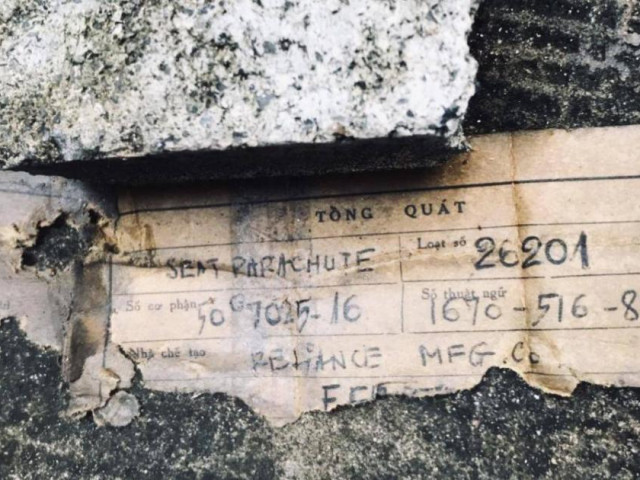 TỔNG QUÁT
SEAT PARACHUTE Loạt số 26201
Số cơ phận 50 G 7025-16 Số thuật ngữ 1670-516-8
Nhà chế tạo RELIANCE MFG. Co